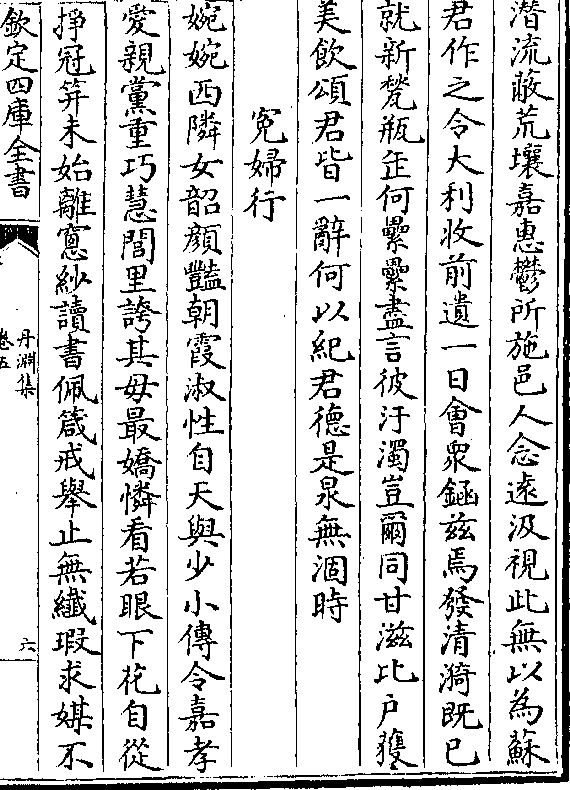 潛流蔽荒壤嘉惠鬱所施邑人念遠汲視此無以為蘇
君作之令大利收前遺一日會衆鍤茲焉發清漪既已
就新甃瓶缶何纍纍盡言彼汙濁豈爾同甘滋比户獲
美飲頌君皆一辭何以紀君德是泉無涸時
寃婦行
婉婉西隣女韶顔豔朝霞淑性自天與少小傳令嘉孝
愛親黨重巧慧閭里誇其母最嬌憐看若眼下花自從
擇冠笄未始離窻紗讀書佩箴戒舉止無纖瑕求媒不
欽定四庫全書
丹淵集
卷五
六